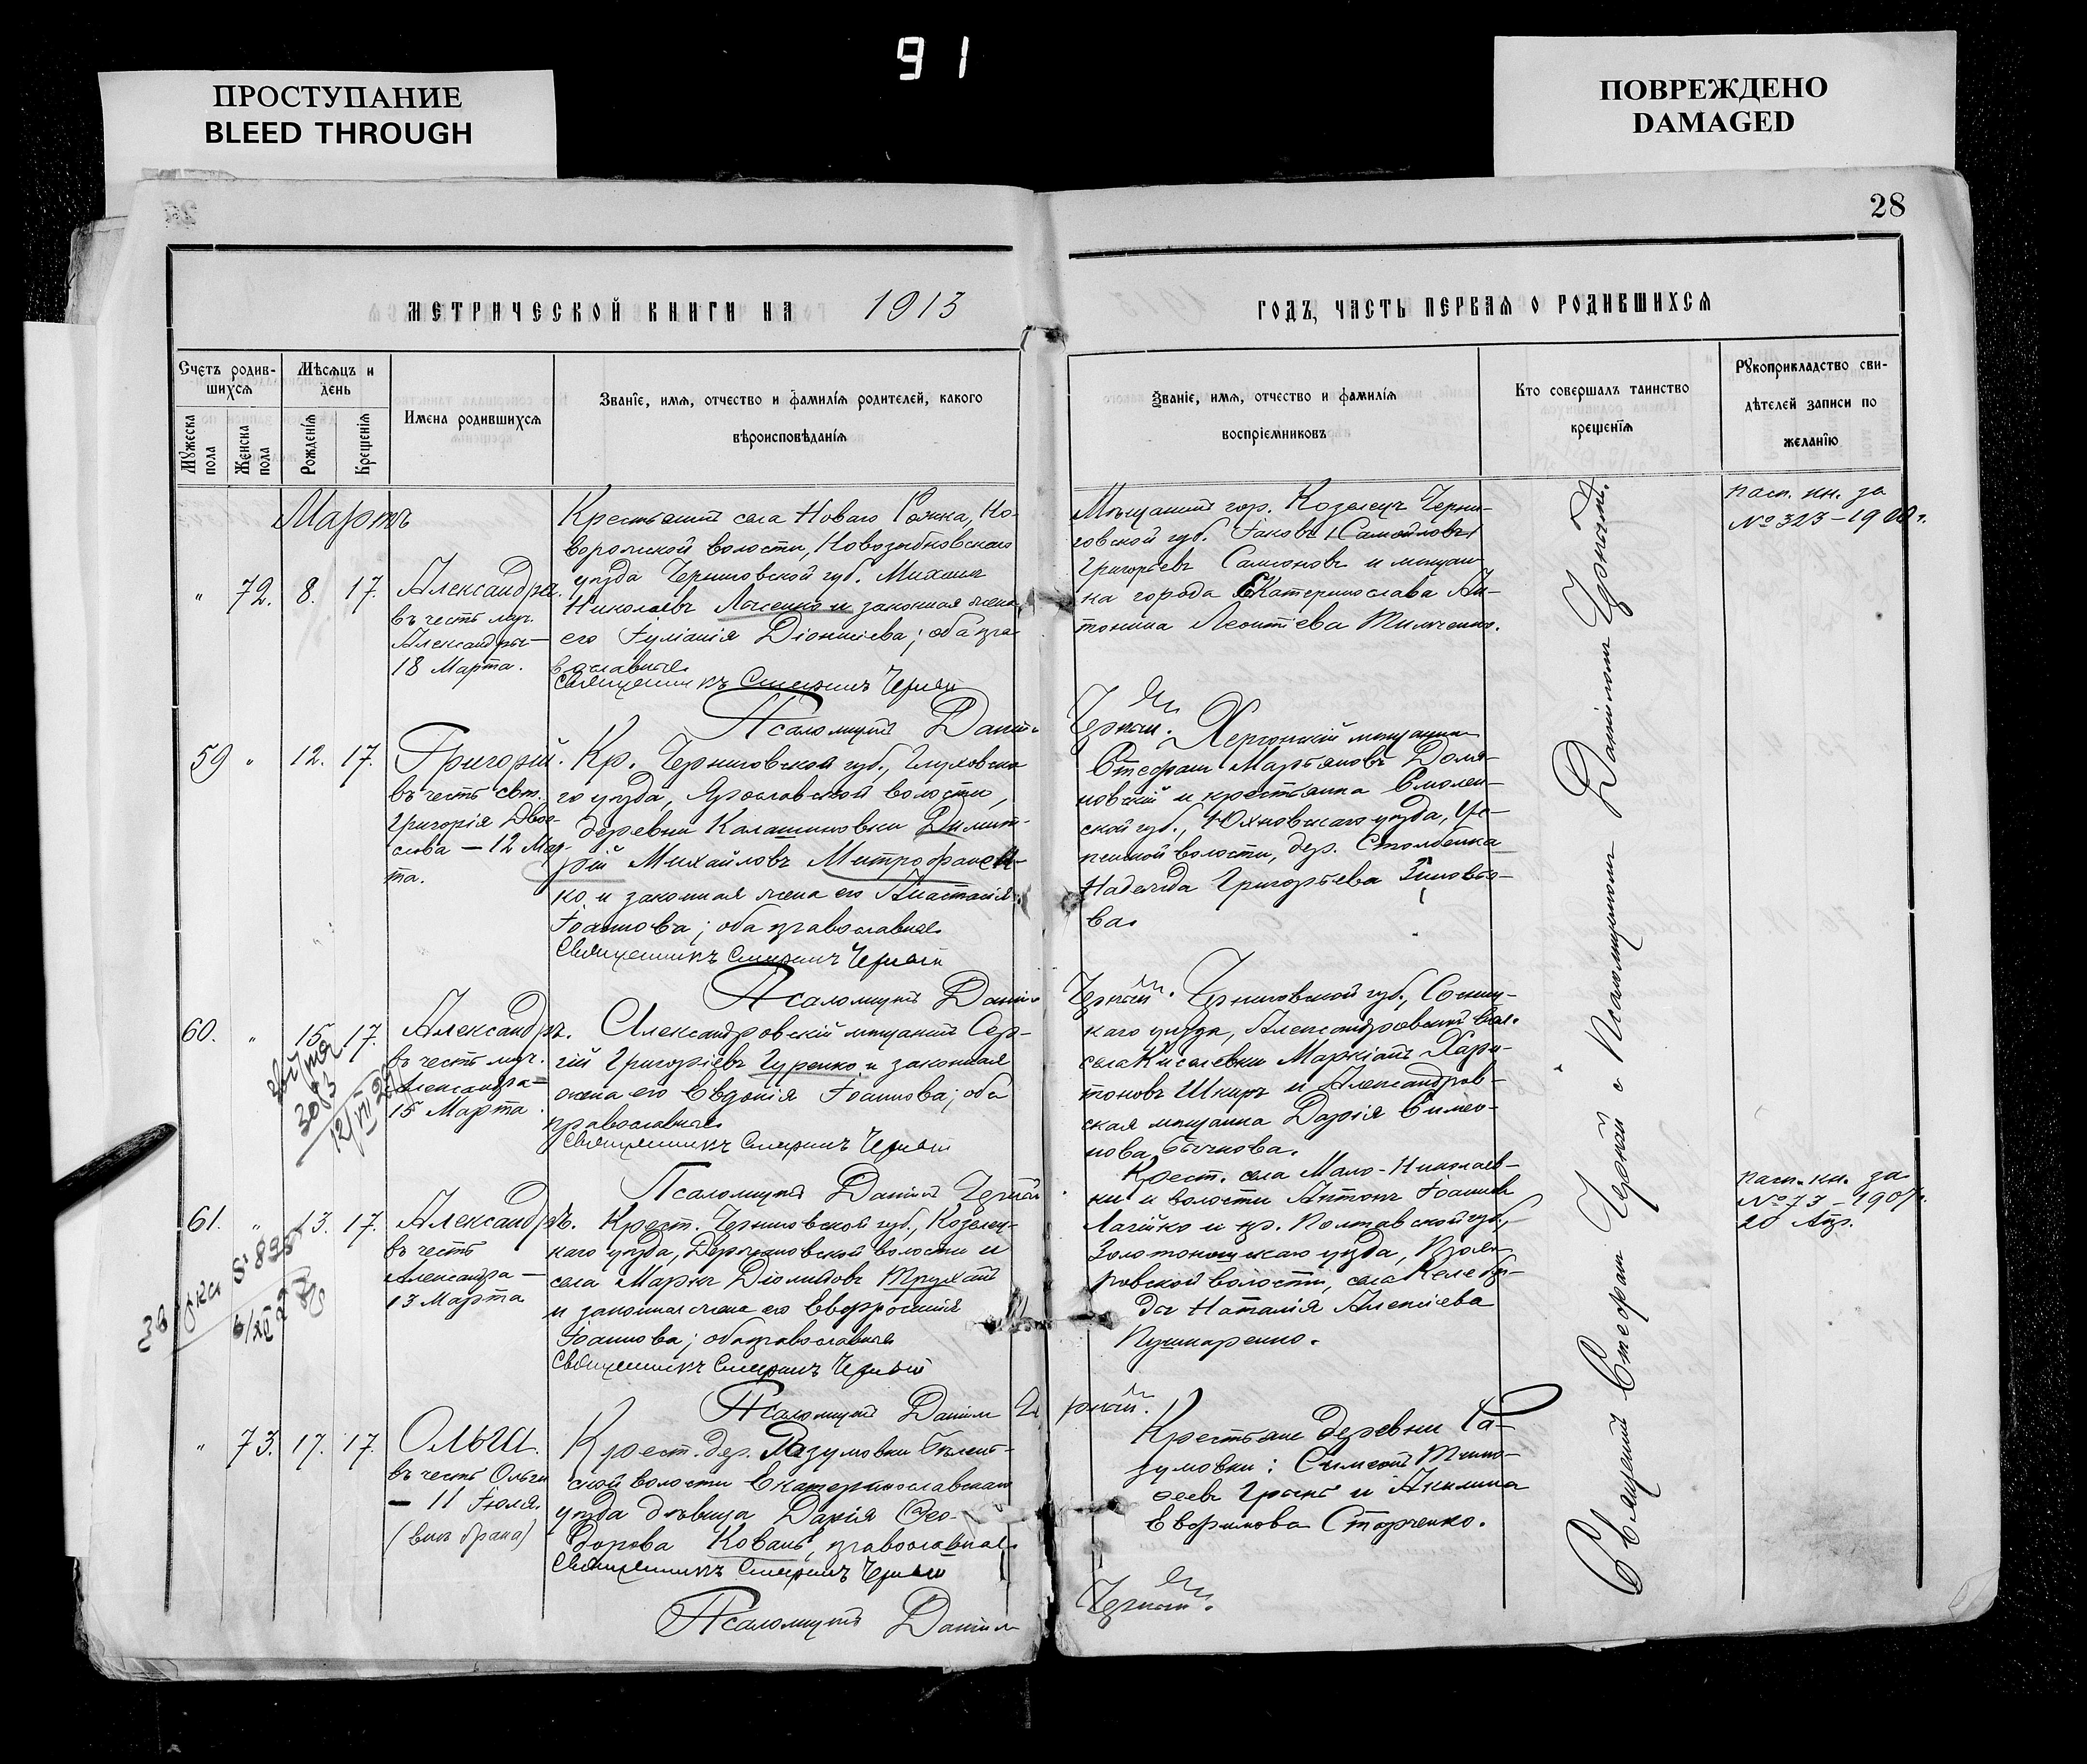 91
ПРОСТУПАНИЕ
BLEED THROUGH
ПОВРЕЖДЕНО
DAMAGED
28
МЕТРИЧЕСКОЙ КНИГИ НА 1913
ГОДЪ, ЧАСТЬ ПЕРВАЯ О РОДИВШИХСЯ
Счетъ родив-
шихся
Мужеска пола
Женска пола
Мѣсяцъ и
день
Рожденія
Крещенія
Имена родившихся
Званіе, имя, отчество и фамилія родителей, какого
вѣроисповѣданія
Званіе, имя, отчество и фамилія
воспріемниковъ
Кто совершалъ таинство
крещенія
Рукоприкладство сви-
дѣтелей записи по
желанію
Мартъ
" 72. 8. 17.
Александра.
въ честь муч.
Александры —
18 Марта.
Крестьянинъ села Новаго Ропска, Но-
воропской волости, Новозыбковскаго
уѣзда Черниговской губ. Михаилъ
Николаевъ и законная жена
его Іуліанія Діонисіева; оба пра-
вославные.
Священникъ Стефанъ Черный
Псаломщикъ Даніилъ Черный.
Мѣщанинъ гор. Козелецъ Черни-
говской губ. Іаковъ (Самойловъ)
Григорьевъ Самсоновъ и мѣщан-
ка города Екатеринослава Ан-
тонина Леонтіева Тимченко.
расп. кн. за
№ 323 – 1908 г.
59 " 12. 17.
Григорій.
въ честь свт.
Григорія Двое-
слова — 12 Мар-
та.
Кр. Черниговской губ., Глуховска-
го уѣзда, Ярославской волости,
деревни Калашиновки Димит-
рій Михайловъ Митрофанен-
ко и законная жена его Анастасія
Іоаннова; оба православные.
Священникъ Стефанъ Черный
Псаломщикъ Даніилъ Черный.
Херсонскій мѣщанинъ
Стефанъ Мартьяновъ Доля-
новскій и крестьянка Смолен-
ской губ., Юхновскаго уѣзда, Ус-
пенской волости, дер. Столбенка
Надежда Григорьева Зиновье-
ва.
60. " 15. 17.
Александръ.
въ честь муч.
Александра —
15 Марта
3083
12/VII 29
Александровскій мѣщанинъ Сер-
гій Григоріевъ Гуренко и законная
жена его Евдокія Іоаннова; оба
православные.
Священникъ Стефанъ Черный
Псаломщикъ Даніилъ Черный.
Черниговской губ., Сосниц-
каго уѣзда, Александровской вол.
села Киселевки Маркіанъ Хари-
тоновъ Шкиръ и Александров-
ская мѣщанка Дарія Симео-
нова Бычкова.
61. " 13. 17.
Александръ.
въ честь
Александра —
13 Марта
Крест. Черниговской губ., Козелец-
каго уѣзда, Держановской волости и
села Маркъ Діомидовъ Труханъ
и законная жена его Евфросинія
Іоаннова; оба православные
Священникъ Стефанъ Черный
Псаломщикъ Даніилъ Черный.
Крест. села Мало-Николаев-
ки и волости Антонъ Іоанновъ
Лагійко и кр. Полтавской губ.,
Золотоношскаго уѣзда,
ровской волости, села Келебер-
да Наталія Алексіева
Пушкаренко.
расп. кн. за
№ 73 – 1907 г.
20 Апр.
" 73. 17. 17.
Ольга.
въ честь Ольги
— 11 Іюля.
(внѣ брака)
Крест. дер. Разумовки Бѣлень-
ской волости Екатеринославскаго
уѣзда дѣвица Дарія Ѳео-
дорова Коваль, православная.
Священникъ Стефанъ Черный
Псаломщикъ Даніилъ Черный.
Крестьяне деревни Ра-
зумовки: Симеонъ Тимо-
ѳеевъ и Акилина
Евфимова Старченко.
Священникъ Стефанъ Черный с Псаломщикомъ Даніиломъ Чернымъ.